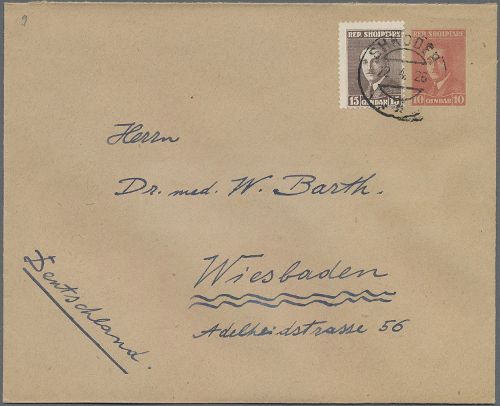 9
REP. SHQIPTARE
REP. SHQIPTARE
SHKODER
4. 26
15 QINDAR 15
10 QINDAR 10
Herrn
Dr. med. W. Barth.
Wiesbaden
Adelheidstrasse 56
Deutschland.